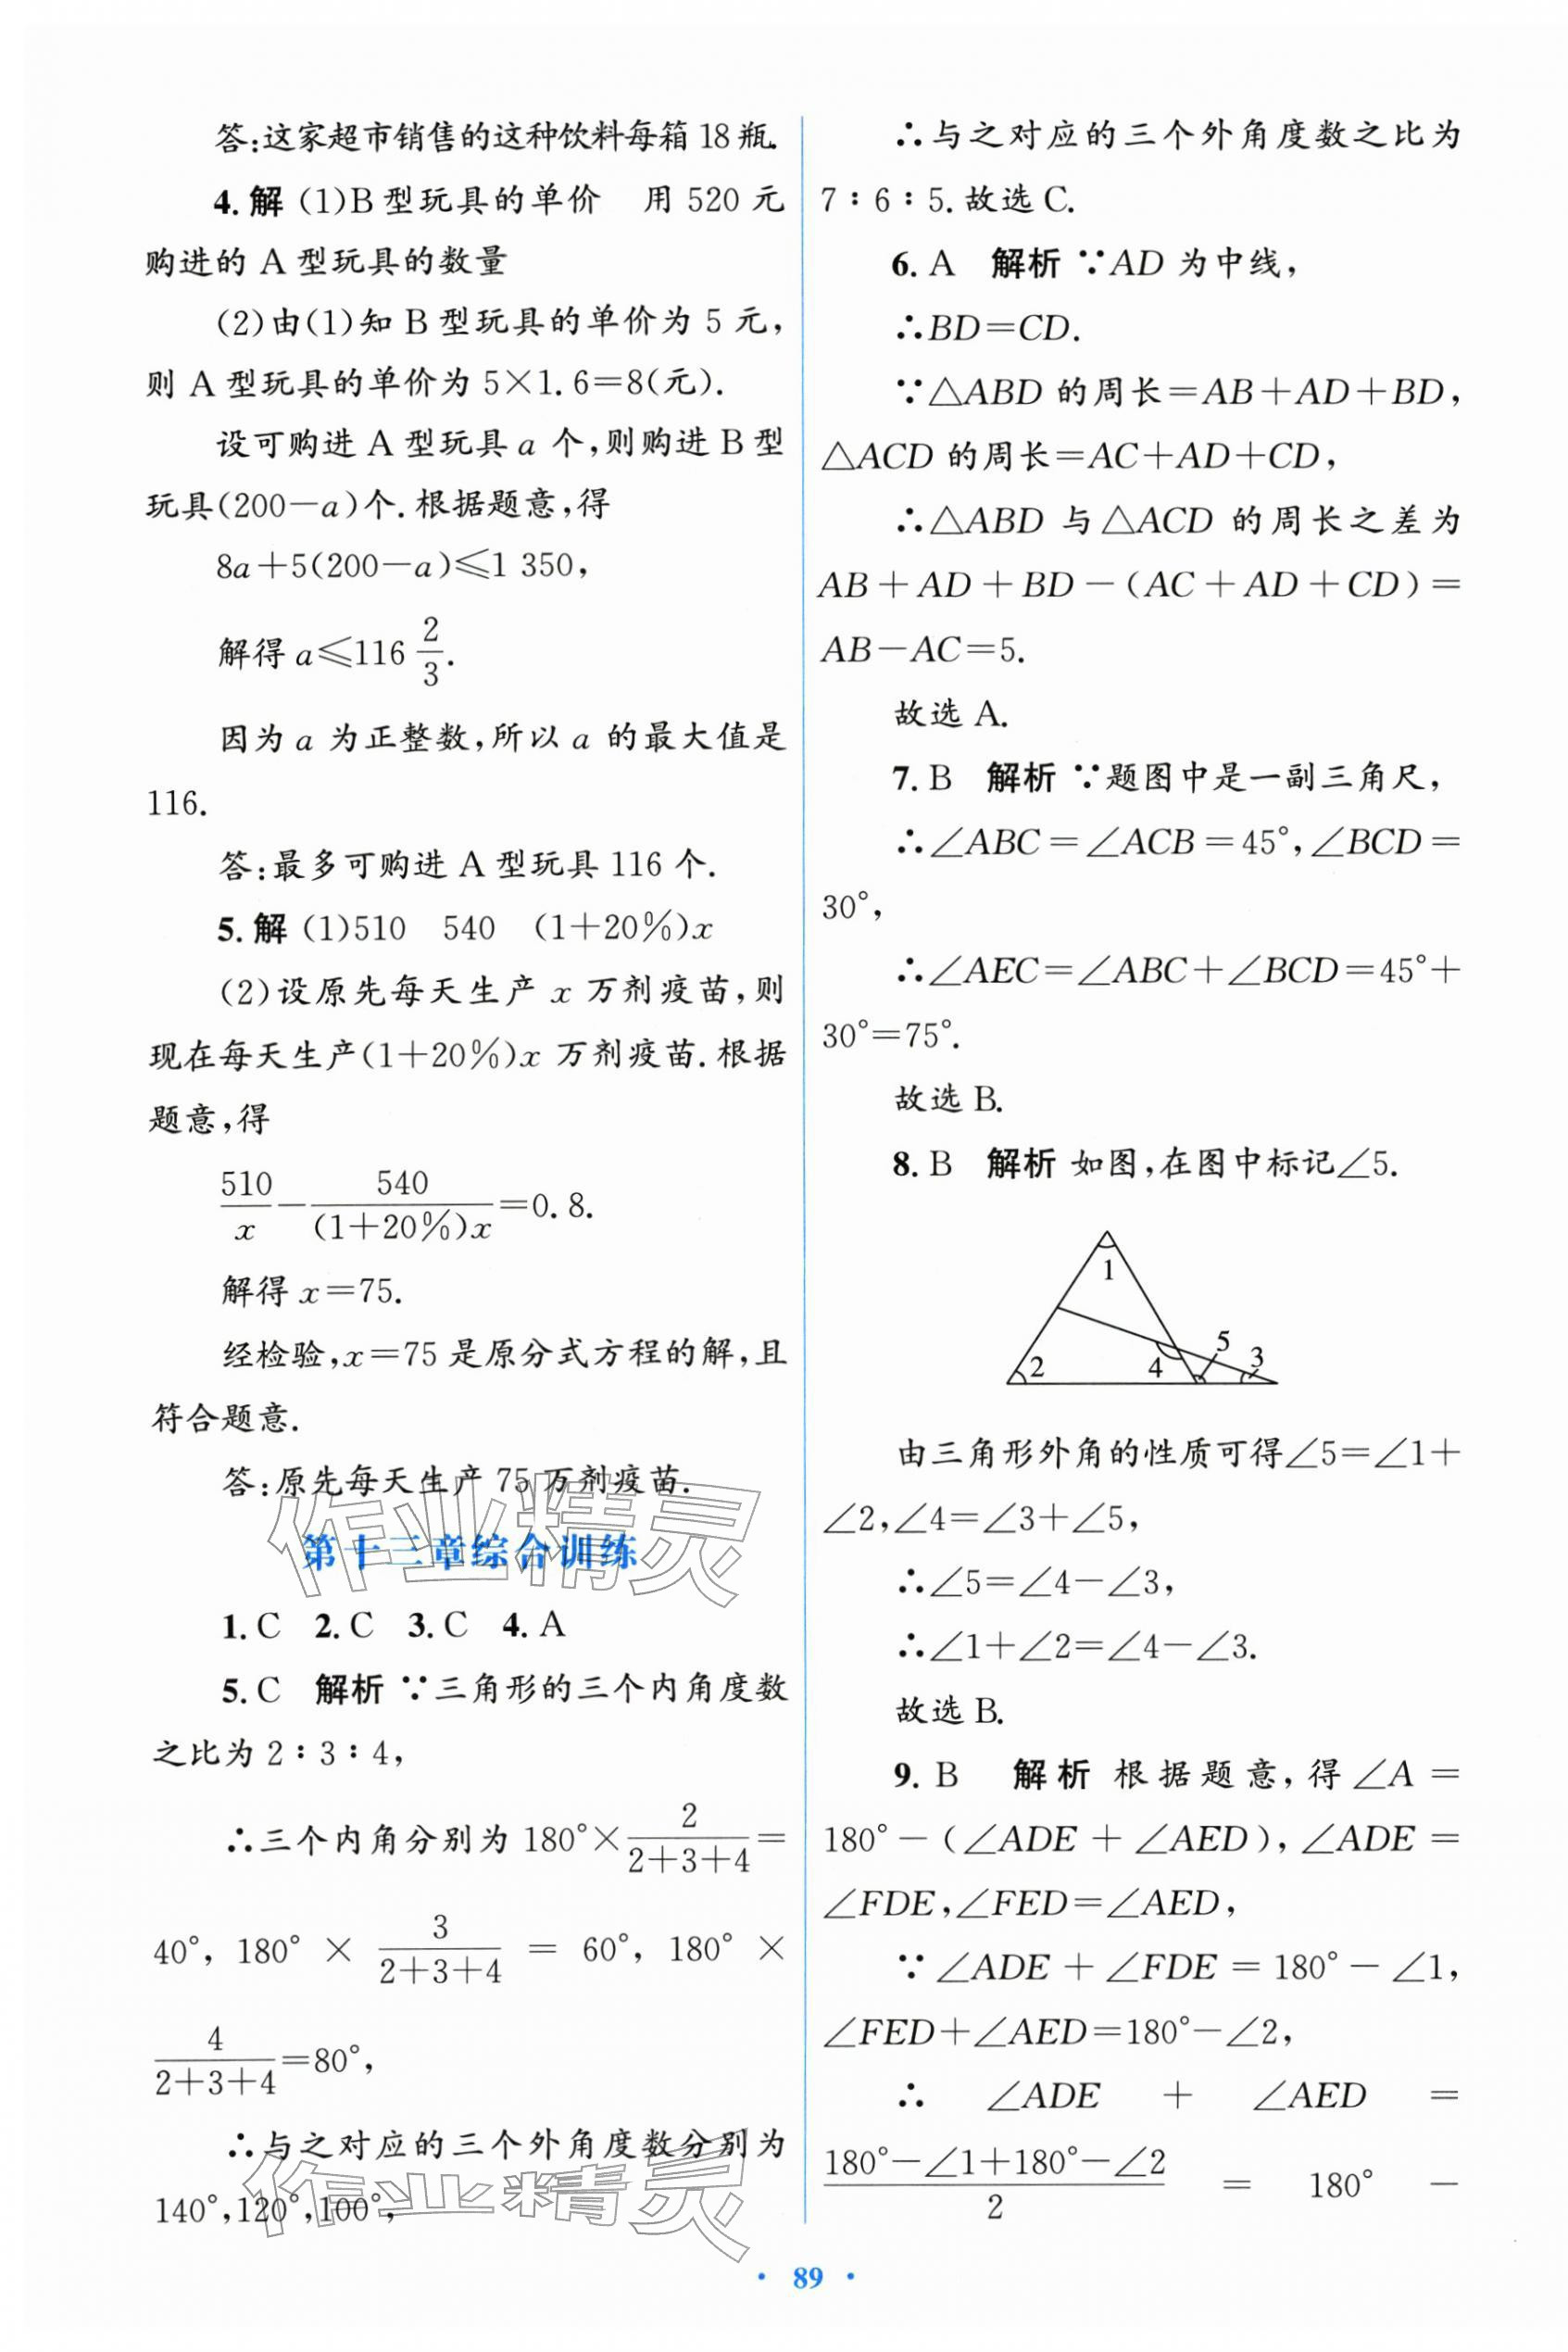 答:这家超市销售的这种饮料每箱18瓶.
4.解 (1)B型玩具的单价　用520元
购进的A型玩具的数量
(2)由(1)知B型玩具的单价为5元,
则A型玩具的单价为5×1.6=8(元).
设可购进A型玩具a个,则购进B型
玩具(200-a)个.根据题意,得
8a+5(200-a)≤1 350,
解得a≤116 2/3.
因为a为正整数,所以a的最大值是
116.
答:最多可购进A型玩具116个.
5.解 (1)510　540　(1+20%)x
(2)设原先每天生产x万剂疫苗,则
现在每天生产(1+20%)x万剂疫苗.根据
题意,得
510/x - 540/((1+20%)x)=0.8.
解得x=75.
经检验,x=75是原分式方程的解,且
符合题意.
答:原先每天生产75万剂疫苗.
第十三章综合训练
1.C　2.C　3.C　4.A
5.C　解析 ∵三角形的三个内角度数
之比为2∶3∶4,
∴三个内角分别为180°×2/(2+3+4)=
40°, 180°×3/(2+3+4)=60°, 180°×
4/(2+3+4)=80°,
∴与之对应的三个外角度数分别为
140°,120°,100°,
∴与之对应的三个外角度数之比为
7∶6∶5.故选C.
6.A　解析 ∵AD为中线,
∴BD=CD.
∵△ABD的周长=AB+AD+BD,
△ACD的周长=AC+AD+CD,
∴△ABD与△ACD的周长之差为
AB+AD+BD-(AC+AD+CD)=
AB-AC=5.
故选A.
7.B　解析 ∵题图中是一副三角尺,
∴∠ABC=∠ACB=45°,∠BCD=
30°,
∴∠AEC=∠ABC+∠BCD=45°+
30°=75°.
故选B.
8.B　解析 如图,在图中标记∠5.
1
2
4
5
3
由三角形外角的性质可得∠5=∠1+
∠2,∠4=∠3+∠5,
∴∠5=∠4-∠3,
∴∠1+∠2=∠4-∠3.
故选B.
9.B　解析 根据题意,得∠A=
180°-(∠ADE+∠AED),∠ADE=
∠FDE,∠FED=∠AED,
∵∠ADE+∠FDE=180°-∠1,
∠FED+∠AED=180°-∠2,
∴ ∠ADE + ∠AED =
(180°-∠1+180°-∠2)/2 = 180° -
作业精灵
作业精灵
• 89 •